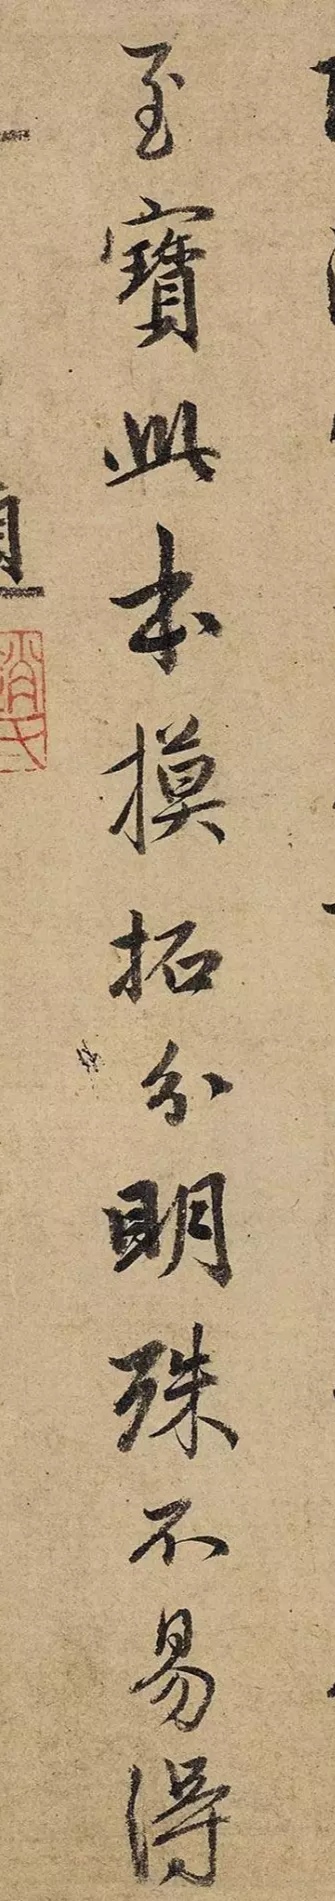 至寶此本摸拓分明殊不易得